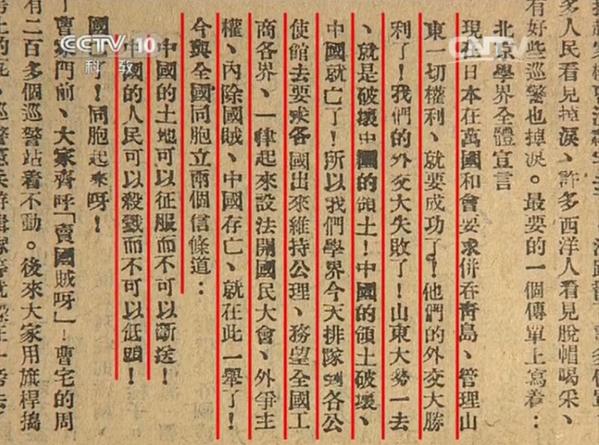 多人民看見掉淚、許多西洋人看見脫帽喝采、
有好些巡警也掉淚。最要的一個傳單上寫着:
北京學界全體宣言
現在日本在萬國和會要求併吞青島、管理山
東一切權利、就要成功了!他們的外交大勝
利了!我們的外交大失敗了!山東大勢一去
、就是破壞中國的領土!中國的領土破壞、
中國就亡了!所以我們學界今天排隊到各公
使館去要求各國出來維持公理、務望全國工
商各界、一律起來設法開國民大會、外爭主
權、內除國賊、中國存亡、就在此一舉了!
今與全國同胞立兩個信條道:
中國的土地可以征服而不可以斷送!
中國的人民可以殺戮而不可以低頭!
國!同胞起來呀!
門前、大家齊呼「賣國賊呀」!曹宅的周
有二百多個巡警站着不動。後來大家用旗桿搗
CCTV 10
科教
CNTV